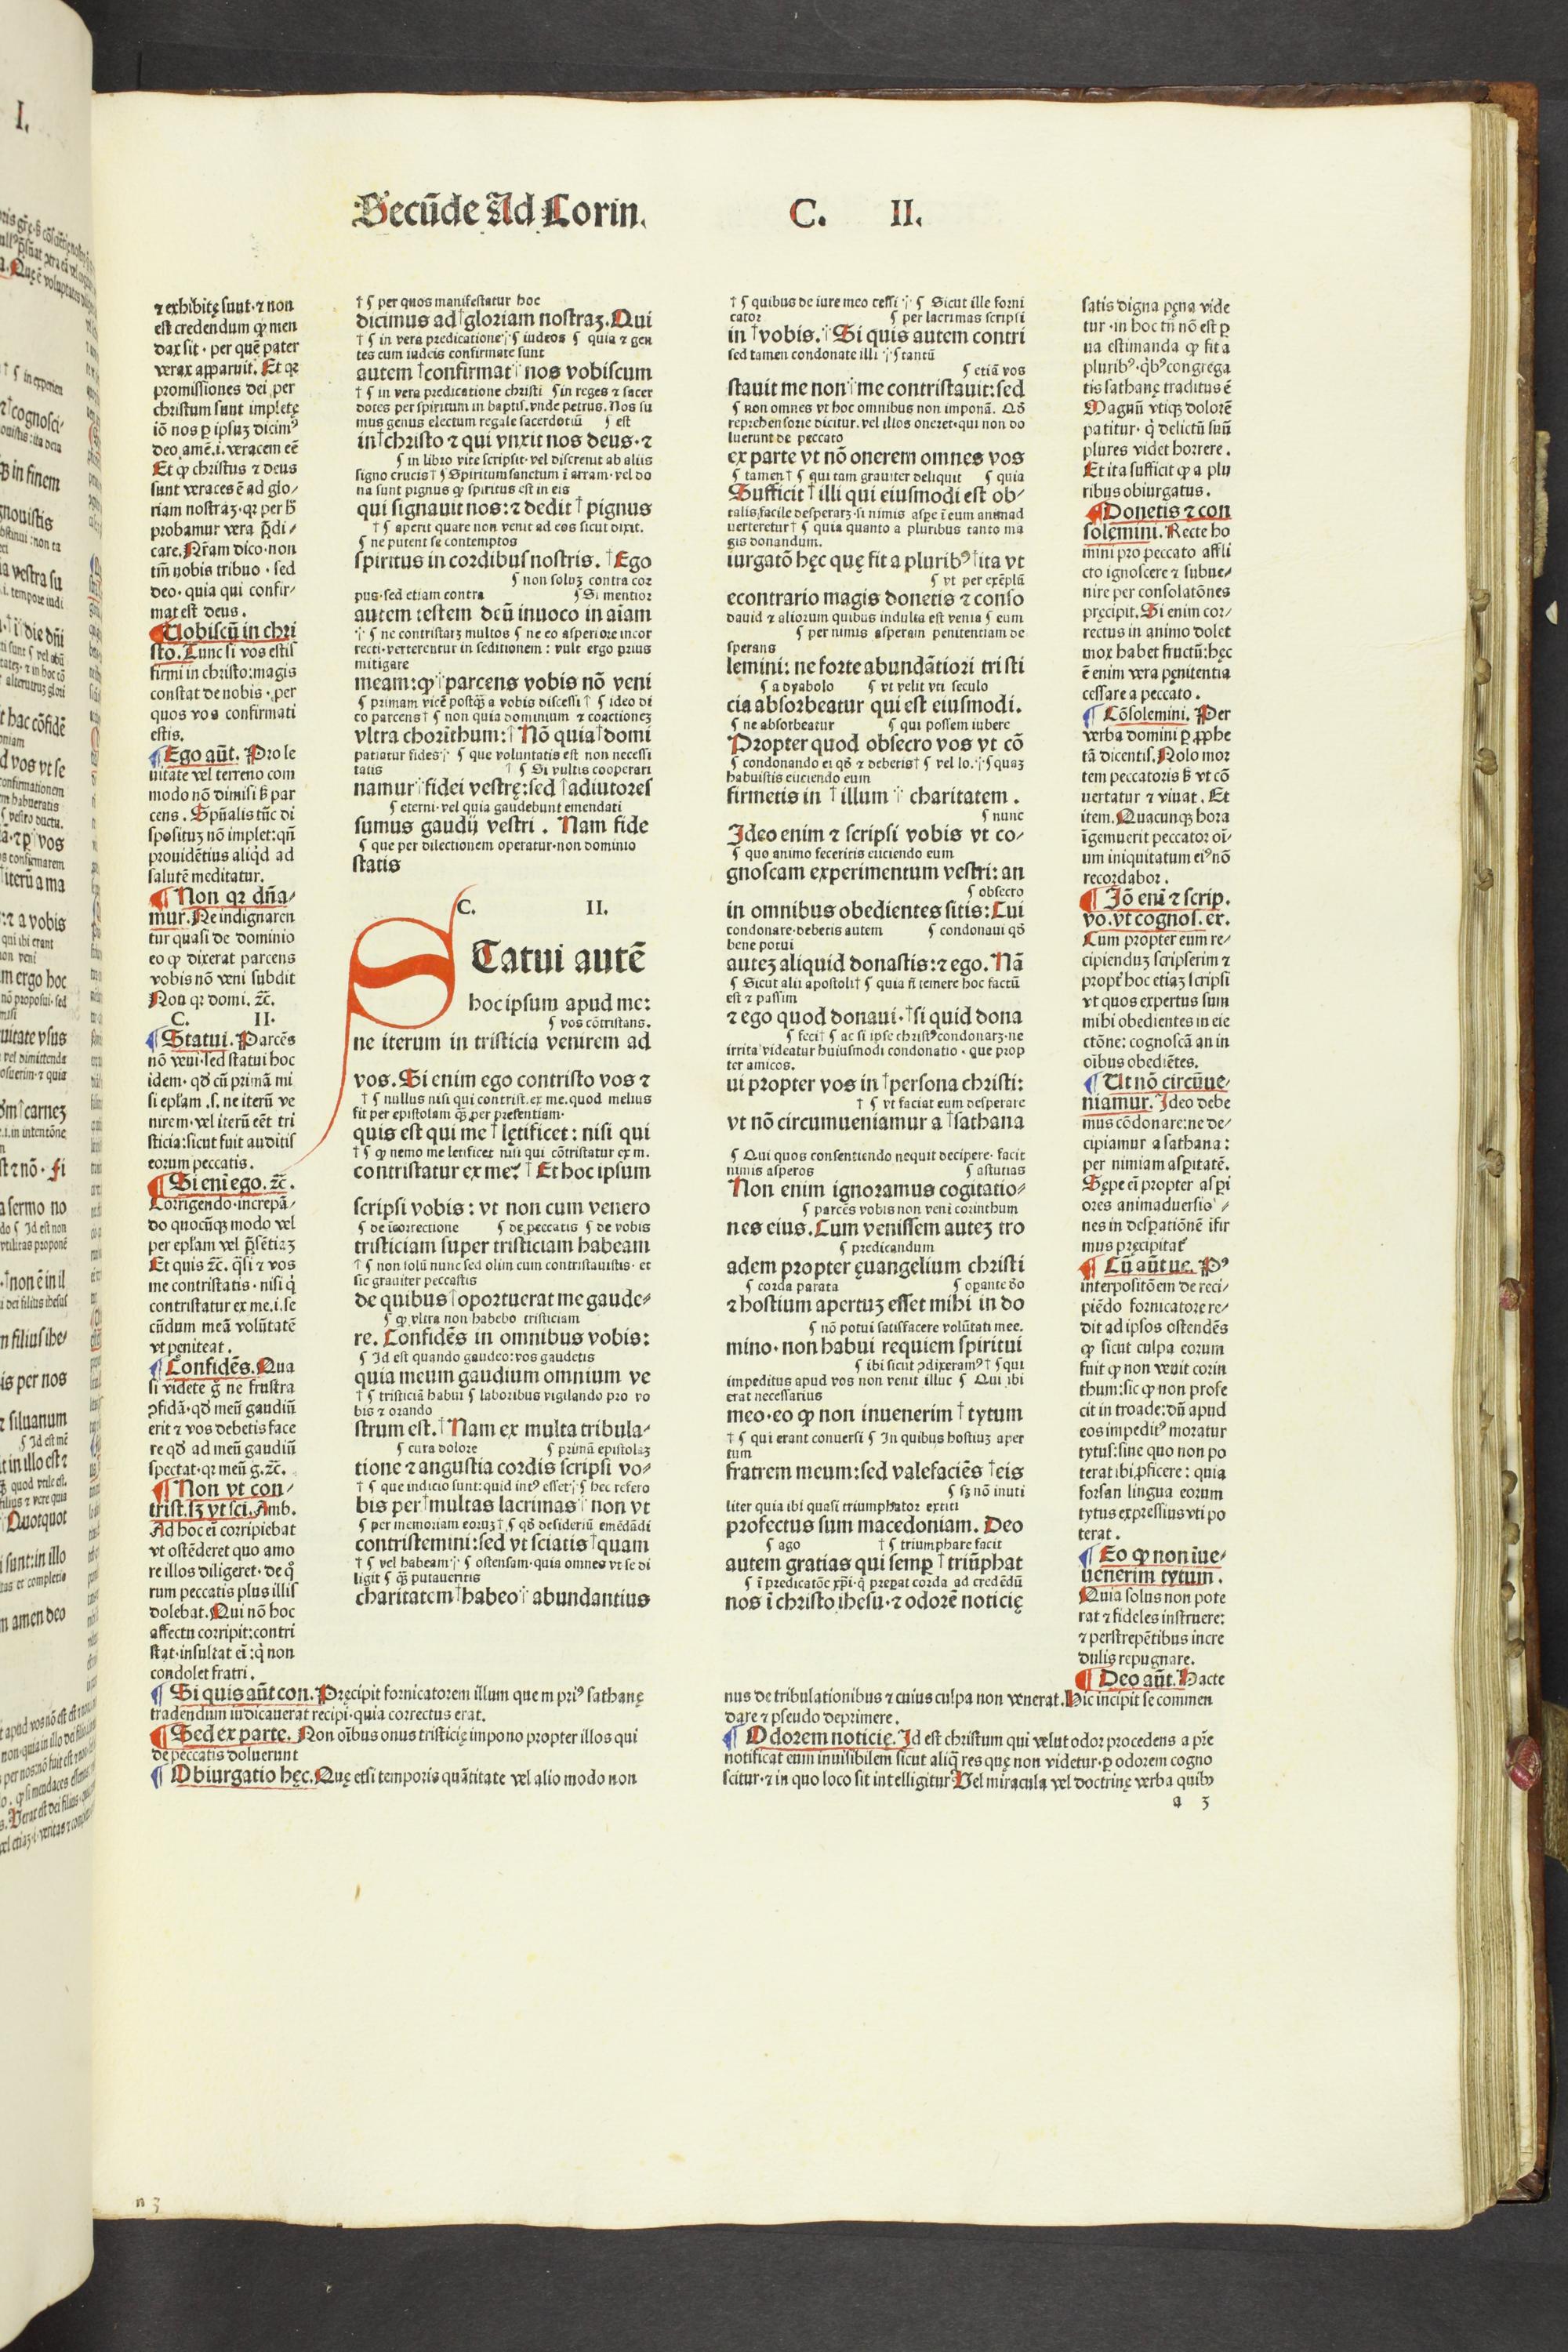 Secūde Ad Corin.
C. II.
⁊ exhibitę sunt· ⁊ non
est credendum ꝙ men
dax sit· per quē pater
verax apparuit. Et qꝛ
promissiones dei per
christum sunt impletę
iō nos ꝑ ipsuꝫ dicimꝰ
deo amē.i. veracem eē
Et ꝙ christus ⁊ deus
sunt veraces ē ad glo⸗
riam nostraꝫ· qꝛ per h̄
probamur vera p̄di⸗
care. Nr̄am dico· non
tm̄ nobis tribuo· sed
deo· quia qui confir⸗
mat est deus.
¶ Uobiscū in chri
sto. Tunc si vos estis
firmi in christo: magis
constat de nobis· per
quos vos confirmati
estis.
¶ Ego aūt. Pro le
uitate vel terreno com
modo nō dimisi s̄ par
cens. Sp̄ualis tūc di
sposituꝫ nō implet: qn̄
prouidētius aliqd ad
salutē meditatur.
¶ Non qꝛ dn̄a⸗
mur. Ne indignaren
tur quasi de dominio
eo ꝙ dixerat parcens
vobis nō veni subdit
Non qꝛ domi. ⁊c̄.
C. II.
¶ Statui. Parcēs
nō veni· sed statui hoc
idem· qd̄ cū primā mi
si epl̄am .s. ne iterū ve
nirem· vel iterū eēt tri
sticia: sicut fuit auditis
eorum peccatis.
¶ Si eni ego. ⁊c̄.
Corrigendo· increpā⸗
do quocūqꝫ modo vel
per epl̄am vel p̄sētiaꝫ
Et quis ⁊c̄. q̄si ⁊ vos
me contristatis· nisi q̇
contristatur ex me.i. se
cūdum meā volūtatē
vt peniteat.
¶ Confidēs. Qua
si videte g̊ ne frustra
ꝯfidā· qd̄ meū gaudiū
erit ⁊ vos debetis face
re qd̄ ad meū gaudiū
spectat· qꝛ meū g. ⁊c̄.
¶ Non vt con⸗
trist. sꝫ vt sci. Amb.
Ad hoc ei corripiebat
vt ostēderet quo amo
re illos diligeret· de qͦ
rum peccatis plus illis
dolebat. Qui nō hoc
affectu corripit: contri
stat· insultat ei: q̇ non
condolet fratri.
† ¶ per quos manifestatur hoc
dicimus ad †gloriam nostraꝫ. Qui
† ¶ in vera predicatione ¶ iudeos ¶ quia ⁊ gen
tes cum iudeis confirmate sunt
autem †confirmat† nos vobiscum
† ¶ in vera predicatione christi ¶ in reges ⁊ sacer
dotes per spiritum in baptis. vnde petrus. Nos su
mus genus electum regale sacerdotiū ¶ est
in †christo ⁊ qui vnxit nos deus· ⁊
¶ in libro vite scripsit· vel discreuit ab aliis
signo crucis† ¶ Spiritum sanctum ī arram· vel do
na sunt pignus ꝙ spiritus est in eis
qui signauit nos: ⁊ dedit † pignus
† ¶ aperit quare non venit ad eos sicut dixit.
¶ ne putent se contemptos
spiritus in cordibus nostris. †Ego
¶ non soluꝫ contra cor
pus· sed etiam contra ¶ Si mentior
autem testem deū inuoco in aīam
¶ ne contristarꝫ multos ¶ ne eo asperiore incor
recti· verterentur in seditionem: vult ergo prius
mitigare
meam: ꝙ †parcens vobis nō veni
¶ primam vicē postꝙ̄ a vobis discessi† ¶ ideo di
co parcens† ¶ non quia dominium ⁊ coactioneꝫ
vltra chorithum: †Nō quia †domi
patiatur fides ¶ que voluntatis est non necessi
tatis † ¶ Si vultis cooperari
namur †fidei vestrę: sed †adiutores
¶ eterni· vel quia gaudebunt emendati
sumus gaudij vestri. Nam fide
¶ que per dilectionem operatur· non dominio
statis
C. II.
STatui autē
hoc ipsum apud me:
¶ vos cōtristans.
ne iterum in tristicia venirem ad
vos. Si enim ego contristo vos ⁊
† ¶ nullus nisi qui contrist. ex me. quod melius
fit per epistolam ꝙ̄ per presentiam·
quis est qui me †lętificet: nisi qui
† ¶ ꝙ nemo me letificet nisi qui cōtristatur ex m.
contristatur ex me? † Et hoc ipsum
scripsi vobis: vt non cum venero
¶ de īcorrectione ¶ de peccatis ¶ de vobis
tristiciam super tristiciam habeam
† ¶ non solū nunc sed olim cum contristauistis· et
sic grauiter peccastis
de quibus †oportuerat me gaude⸗
¶ ꝙ vltra non habebo tristiciam
re. Confidēs in omnibus vobis:
¶ Id est quando gaudeo: vos gaudetis
quia meum gaudium omnium ve
† ¶ tristiciā habui ¶ laboribus vigilando pro vo
bis ⁊ orando
strum est. †Nam ex multa tribula⸗
¶ cura dolore ¶ primā epistolaꝫ
tione ⁊ angustia cordis scripsi vo⸗
† ¶ que indicio sunt: quid intꝰ esset ¶ hec refero
bis per †multas lacrimas† non vt
¶ per memoriam eoruꝫ† ¶ qd̄ desideriū emēdādi
contristemini: sed vt sciatis †quam
† ¶ vel habeam ¶ ostensam· quia omnes vt se di
ligit ¶ ꝙ̄ putaueritis
charitatem †habeo† abundantius
† ¶ quibus de iure meo cessi ¶ Sicut ille forni
cator ¶ per lacrimas scripsi
in †vobis. †Si quis autem contri
sed tamen condonate illi ¶ tantū
¶ etiā vos
stauit me non †me contristauit: sed
¶ non omnes vt hoc omnibus non imponā. Qd̄
reprehensorie dicitur. vel illos oneret· qui non do
luerunt de peccato
ex parte vt nō onerem omnes vos
¶ tamen† ¶ qui tam grauiter deliquit ¶ quia
Sufficit †illi qui eiusmodi est ob⸗
talis facile desperarꝫ· si nimis aspe ī eum animad
uerteretur† ¶ quia quanto a pluribus tanto ma
gis donandum.
iurgatō hęc quę fit a pluribꝰ †ita vt
¶ vt per exēplū
econtrario magis donetis ⁊ conso
dauid ⁊ aliorum quibus indulta est venia ¶ eum
¶ per nimis asperam penitentiam de
sperans
lemini: ne forte abundātiori tristi
¶ a dyabolo ¶ vt velit vti seculo
cia absorbeatur qui est eiusmodi.
¶ ne absorbeatur ¶ qui possem iubere
Propter quod obsecro vos vt cō
¶ condonando ei qd̄ ⁊ debetis† ¶ vel lo. ¶ quaꝫ
habuistis eiiciendo eum
firmetis in †illum† charitatem.
¶ nunc
Ideo enim ⁊ scripsi vobis vt co⸗
¶ quo animo feceritis eiiciendo eum
gnoscam experimentum vestri: an
¶ obsecro
in omnibus obedientes sitis: Cui
condonare· debetis autem ¶ condonaui qd̄
bene potui
auteꝫ aliquid donastis: ⁊ ego. Nā
¶ Sicut alii apostoli† ¶ quia n̄ temere hoc factū
est ⁊ passim
⁊ ego quod donaui· †si quid dona
¶ feci† ¶ ac si ipse christꝰ condonarꝫ· ne
irrita videatur huiusmodi condonatio· que prop
ter amicos.
ui propter vos in †persona christi:
† ¶ vt faciat eum desperare
vt nō circumueniamur a †sathana
¶ Qui quos consentiendo nequit decipere· facit
nimis asperos ¶ astutias
Non enim ignoramus cogitatio⸗
¶ parcēs vobis non veni corinthum
nes eius. Cum venissem auteꝫ tro
¶ predicandum
adem propter ęuangelium christi
¶ corda parata ¶ oꝑante deo
⁊ hostium apertuꝫ esset mihi in do
¶ nō potui satisfacere volūtati mee.
mino· non habui requiem spiritui
¶ ibi sicut ꝯdixeramꝰ† ¶ qui
impeditus apud vos non venit illuc ¶ Qui ibi
erat necessarius
meo· eo ꝙ non inuenerim †tytum
† ¶ qui erant conuersi ¶ In quibus hostiuꝫ aper
tum
fratrem meum: sed valefaciēs †eis
¶ sꝫ nō inuti
liter quia ibi quasi triumphator extiti
profectus sum macedoniam. Deo
¶ ago † ¶ triumphare facit
autem gratias qui semꝑ †triūphat
¶ ī predicatōe xp̄i· q̇ preꝑat corda ad credēdū
nos ī christo ihesu· ⁊ odorē noticię
satis digna pęna vide
tur· in hoc tn̄ nō est ꝑ
ua estimanda ꝙ fit a
pluribꝰ· q̇bꝰ congrega
tis sathanę traditus ē
Magnū vtiqꝫ dolorē
patitur· q̇ delictū suū
plures videt horrere.
Et ita sufficit ꝙ a plu
ribus obiurgatus.
¶ Donetis ⁊ con
solemini. Recte ho
mini pro peccato affli
cto ignoscere ⁊ subue⸗
nire per consolatōnes
pręcipit. Si enim cor⸗
rectus in animo dolet
mox habet fructū: hęc
ē enim vera pęnitentia
cessare a peccato.
¶ Cōsolemini. Per
verba domini ꝑ ꝓphe
tā dicentis. Nolo mor
tem peccatoris s̄ vt cō
uertatur ⁊ viuat. Et
item. Quacunqꝫ hora
īgemuerit peccator oī⸗
um iniquitatum eiꝰ nō
recordabor.
¶ Iō eni ⁊ scrip.
vo. vt cognos. ex.
Cum propter eum re⸗
cipienduꝫ scripserim ⁊
propt̓ hoc etiaꝫ scripsi
vt quos expertus sum
mihi obedientes in eie
ctōne: cognoscā an in
oībus obediētes.
¶ Ut nō circūue⸗
niamur. Ideo debe
mus cōdonare: ne de⸗
cipiamur a sathana:
per nimiam asꝑitatē.
Sępe ei propter asꝑi
ores animaduersio⸗
nes in desꝑatiōnē ifir
mus pręcipitat̓
¶ Cū aūt ue. Pꝰ
interpositōem de reci⸗
piēdo fornicatore re⸗
dit ad ipsos ostendēs
ꝙ sicut culpa eorum
fuit ꝙ non venit corin
thum: sic ꝙ non profe
cit in troade: dū apud
eos impeditꝰ moratur
tytus: sine quo non po
terat ibi ꝓficere: quia
forsan lingua eorum
tytus expressius vti po
terat.
¶ Eo ꝙ non īue⸗
uenerim tytum.
Quia solus non pote
rat ⁊ fideles instruere:
⁊ perstrepētibus incre
dulis repugnare.
¶ Deo aūt. Hacte
¶ Si quis aūt con. Pręcipit fornicatorem illum quem priꝰ sathanę
tradendum iudicauerat recipi· quia correctus erat.
¶ Sed ex parte. Non oībus onus tristicię impono propter illos qui
de peccatis doluerunt
¶ Obiurgatio hęc. Quę etsi temporis quātitate vel alio modo non
nus de tribulationibus ⁊ cuius culpa non venerat. Hic incipit se commen
dare ⁊ pseudo deprimere.
¶ Odorem noticię. Id est christum qui velut odor procedens a pr̄e
notificat eum inuisibilem sicut aliq̄ res quę non videtur· ꝑ odorem cogno
scitur· ⁊ in quo loco sit intelligitur Uel miracula vel doctrinę verba quibꝰ
a 3
n 3
I.